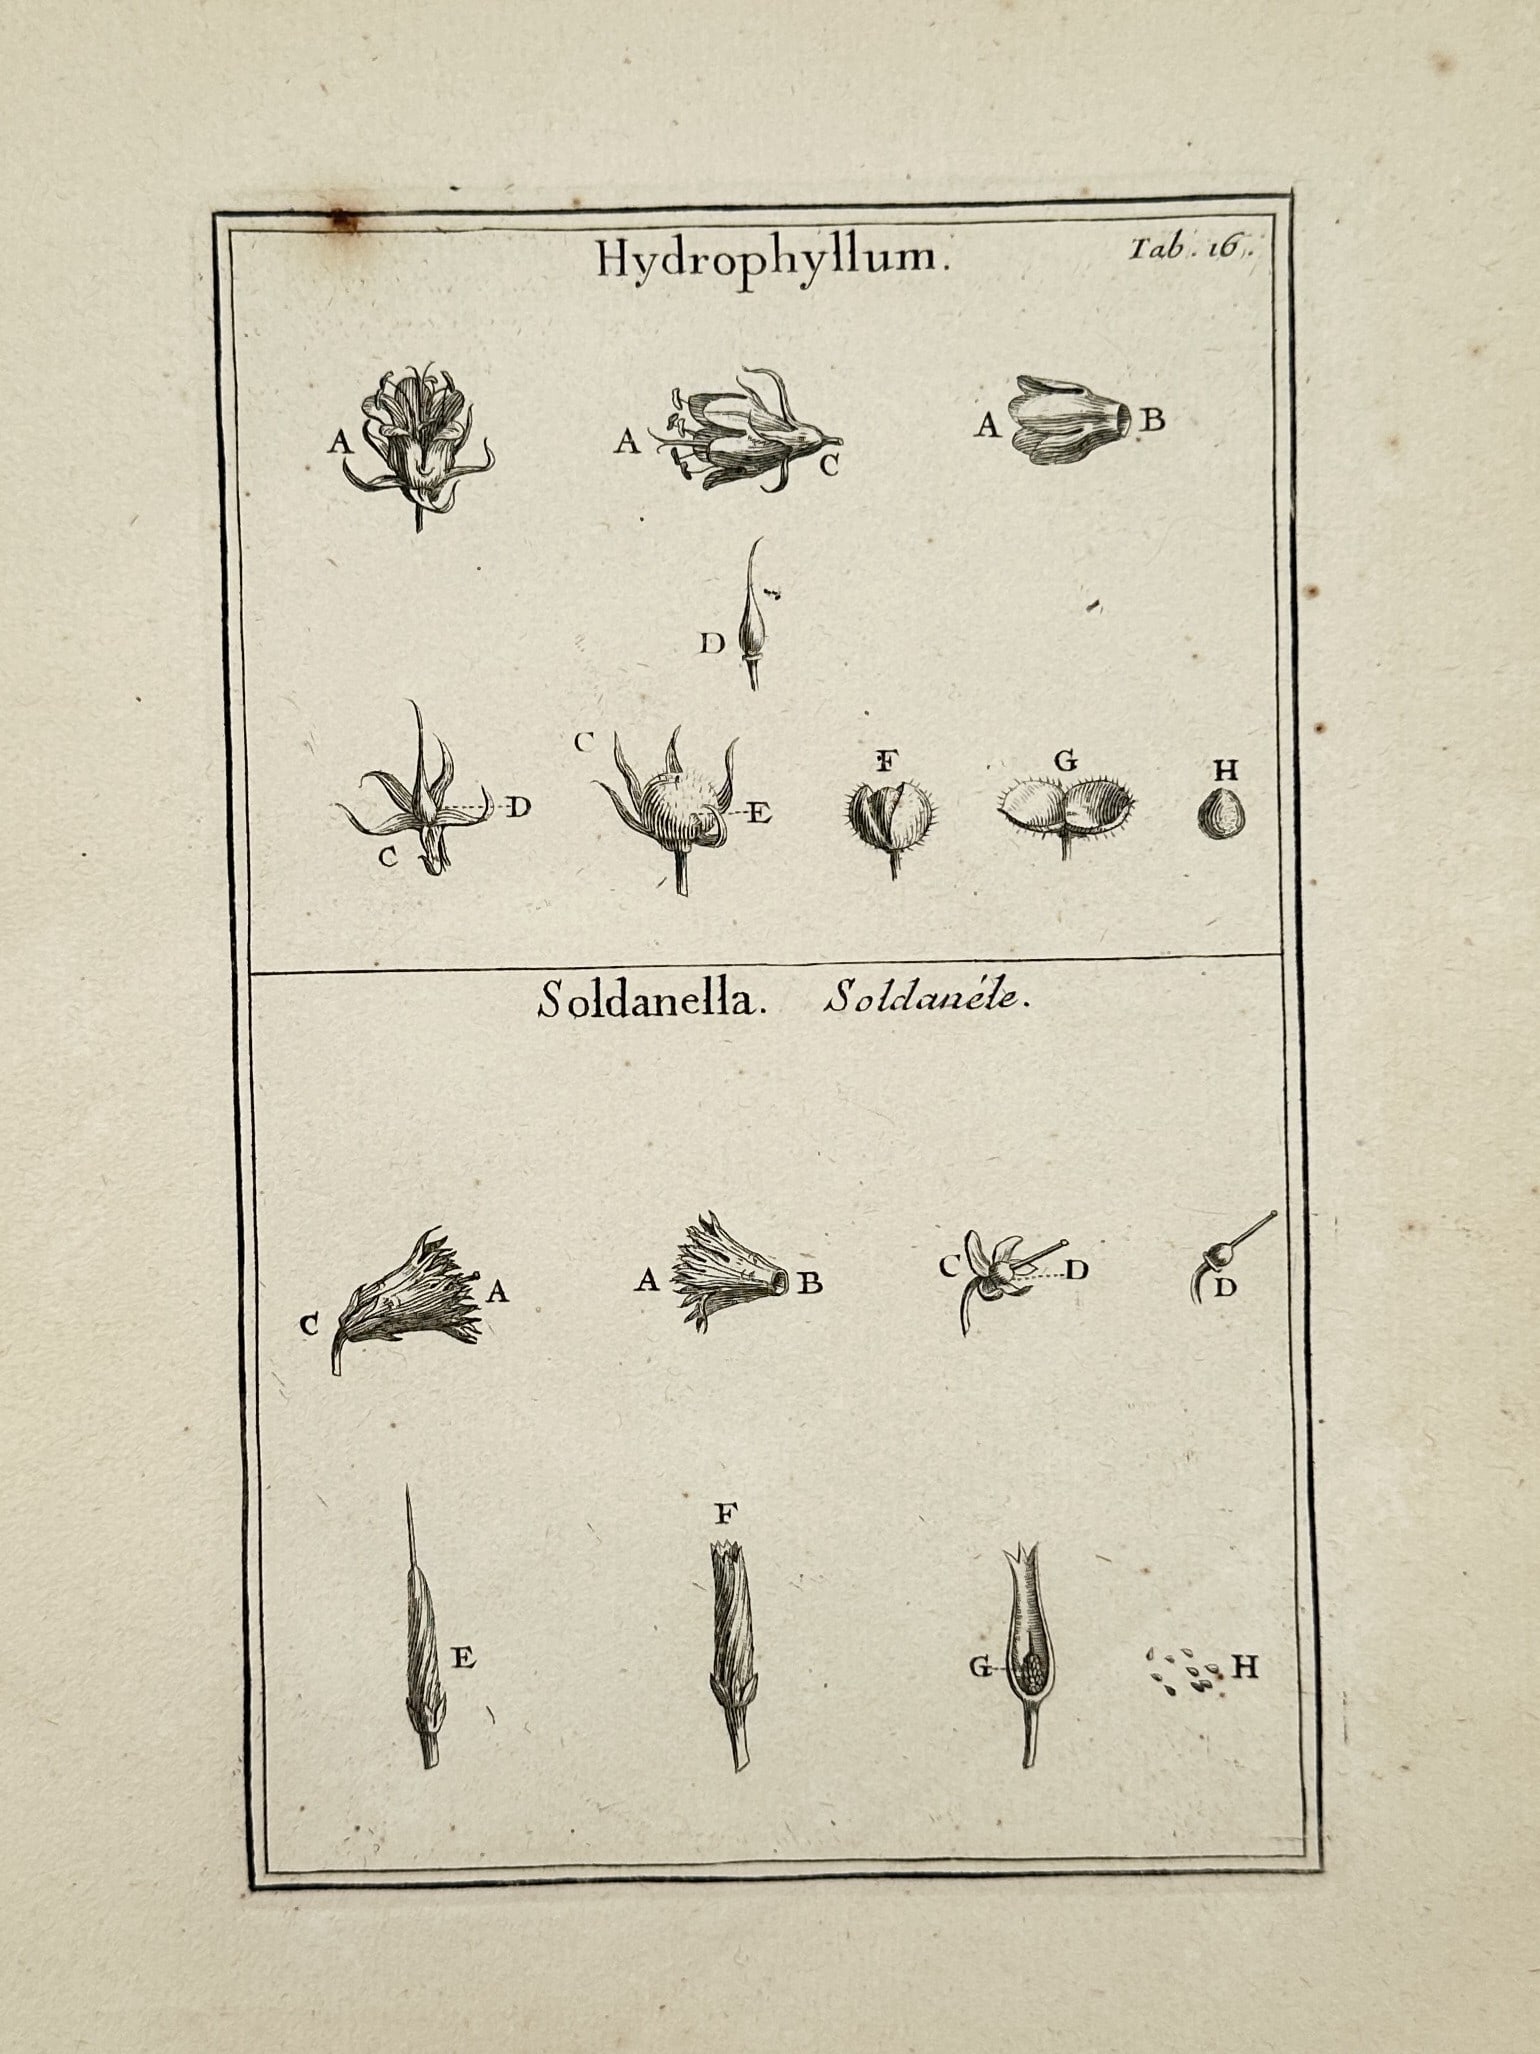 Hydrophyllum. Tab. 16.
A A C A B
D
C D C E F G H
Soldanella. Soldanéle.
C A A B C D D
E F G H